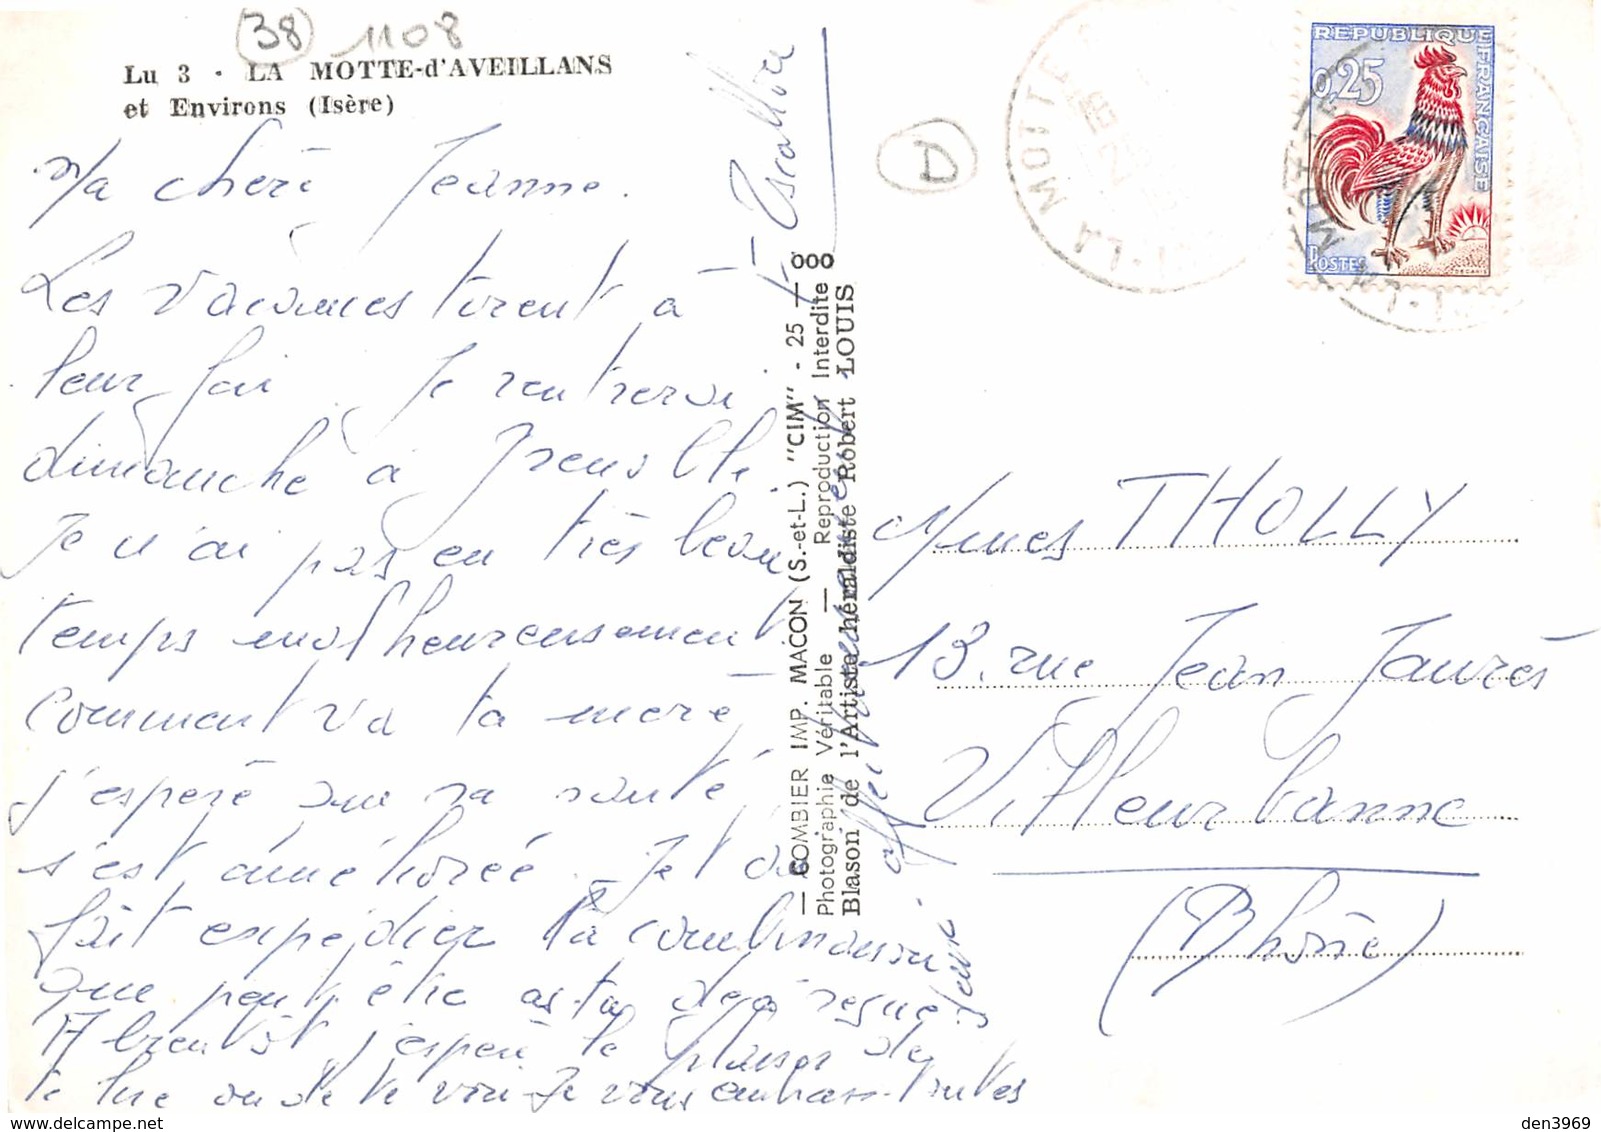 38 1108
Lu 3 - LA MOTTE-d'AVEILLANS
et Environs (Isère)
Ma chère Jeanne.
Les vacances tirent à
leur fin. Je rentrerai
dimanche à Grenoble.
Je n'ai pas eu très beau
temps malheureusement
Comment va ta mère
j'espère que sa santé
s'est améliorée. Je t'ai
fait expédier la combinaison
que peut-être as-tu déjà reçue.
A bientôt j'espère le plaisir de
te lire ou de te voir. Je vous embrasse toutes
deux affectueusement
F Escallon
— COMBIER IMP. MACON (S.-et-L.) "CIM" - 25 —
Photographie Véritable — Reproduction Interdite
Blason de l'Artiste héraldiste Robert LOUIS
D
LA MOTTE
REPUBLIQUE FRANÇAISE
0,25
POSTES
DECARIS
LA MOTTE
Mmes THOLLY
13. rue Jean Jaurès
Villeurbanne
(Rhône)
den3969